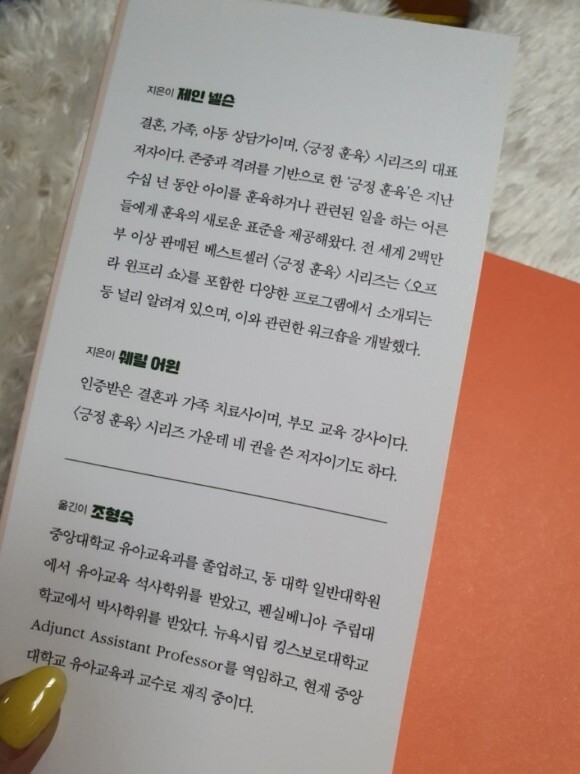 지은이 제인 넬슨
결혼, 가족, 아동 상담가이며, 〈긍정 훈육〉 시리즈의 대표
저자이다. 존중과 격려를 기반으로 한 ‘긍정 훈육’은 지난
수십 년 동안 아이를 훈육하거나 관련된 일을 하는 어른
들에게 훈육의 새로운 표준을 제공해왔다. 전 세계 2백만
부 이상 판매된 베스트셀러 〈긍정 훈육〉 시리즈는 〈오프
라 윈프리 쇼〉를 포함한 다양한 프로그램에서 소개되는
등 널리 알려져 있으며, 이와 관련한 워크숍을 개발했다.
지은이 쉐릴 어윈
인증받은 결혼과 가족 치료사이며, 부모 교육 강사이다.
〈긍정 훈육〉 시리즈 가운데 네 권을 쓴 저자이기도 하다.
옮긴이 조형숙
중앙대학교 유아교육과를 졸업하고, 동 대학 일반대학원
에서 유아교육 석사학위를 받았고, 펜실베니아 주립대
학교에서 박사학위를 받았다. 뉴욕시립 킹스보로대학교
Adjunct Assistant Professor를 역임하고, 현재 중앙
대학교 유아교육과 교수로 재직 중이다.